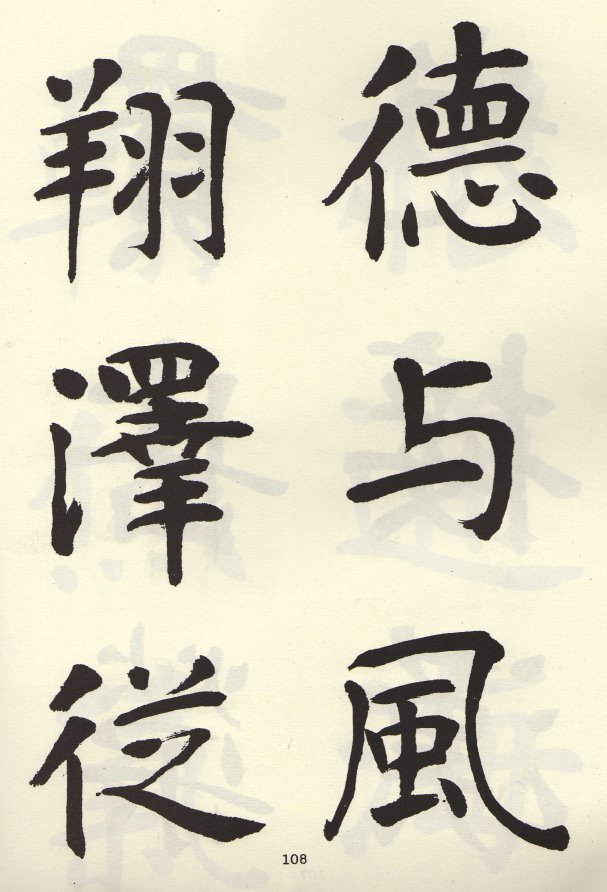 德与風
翔澤従
108